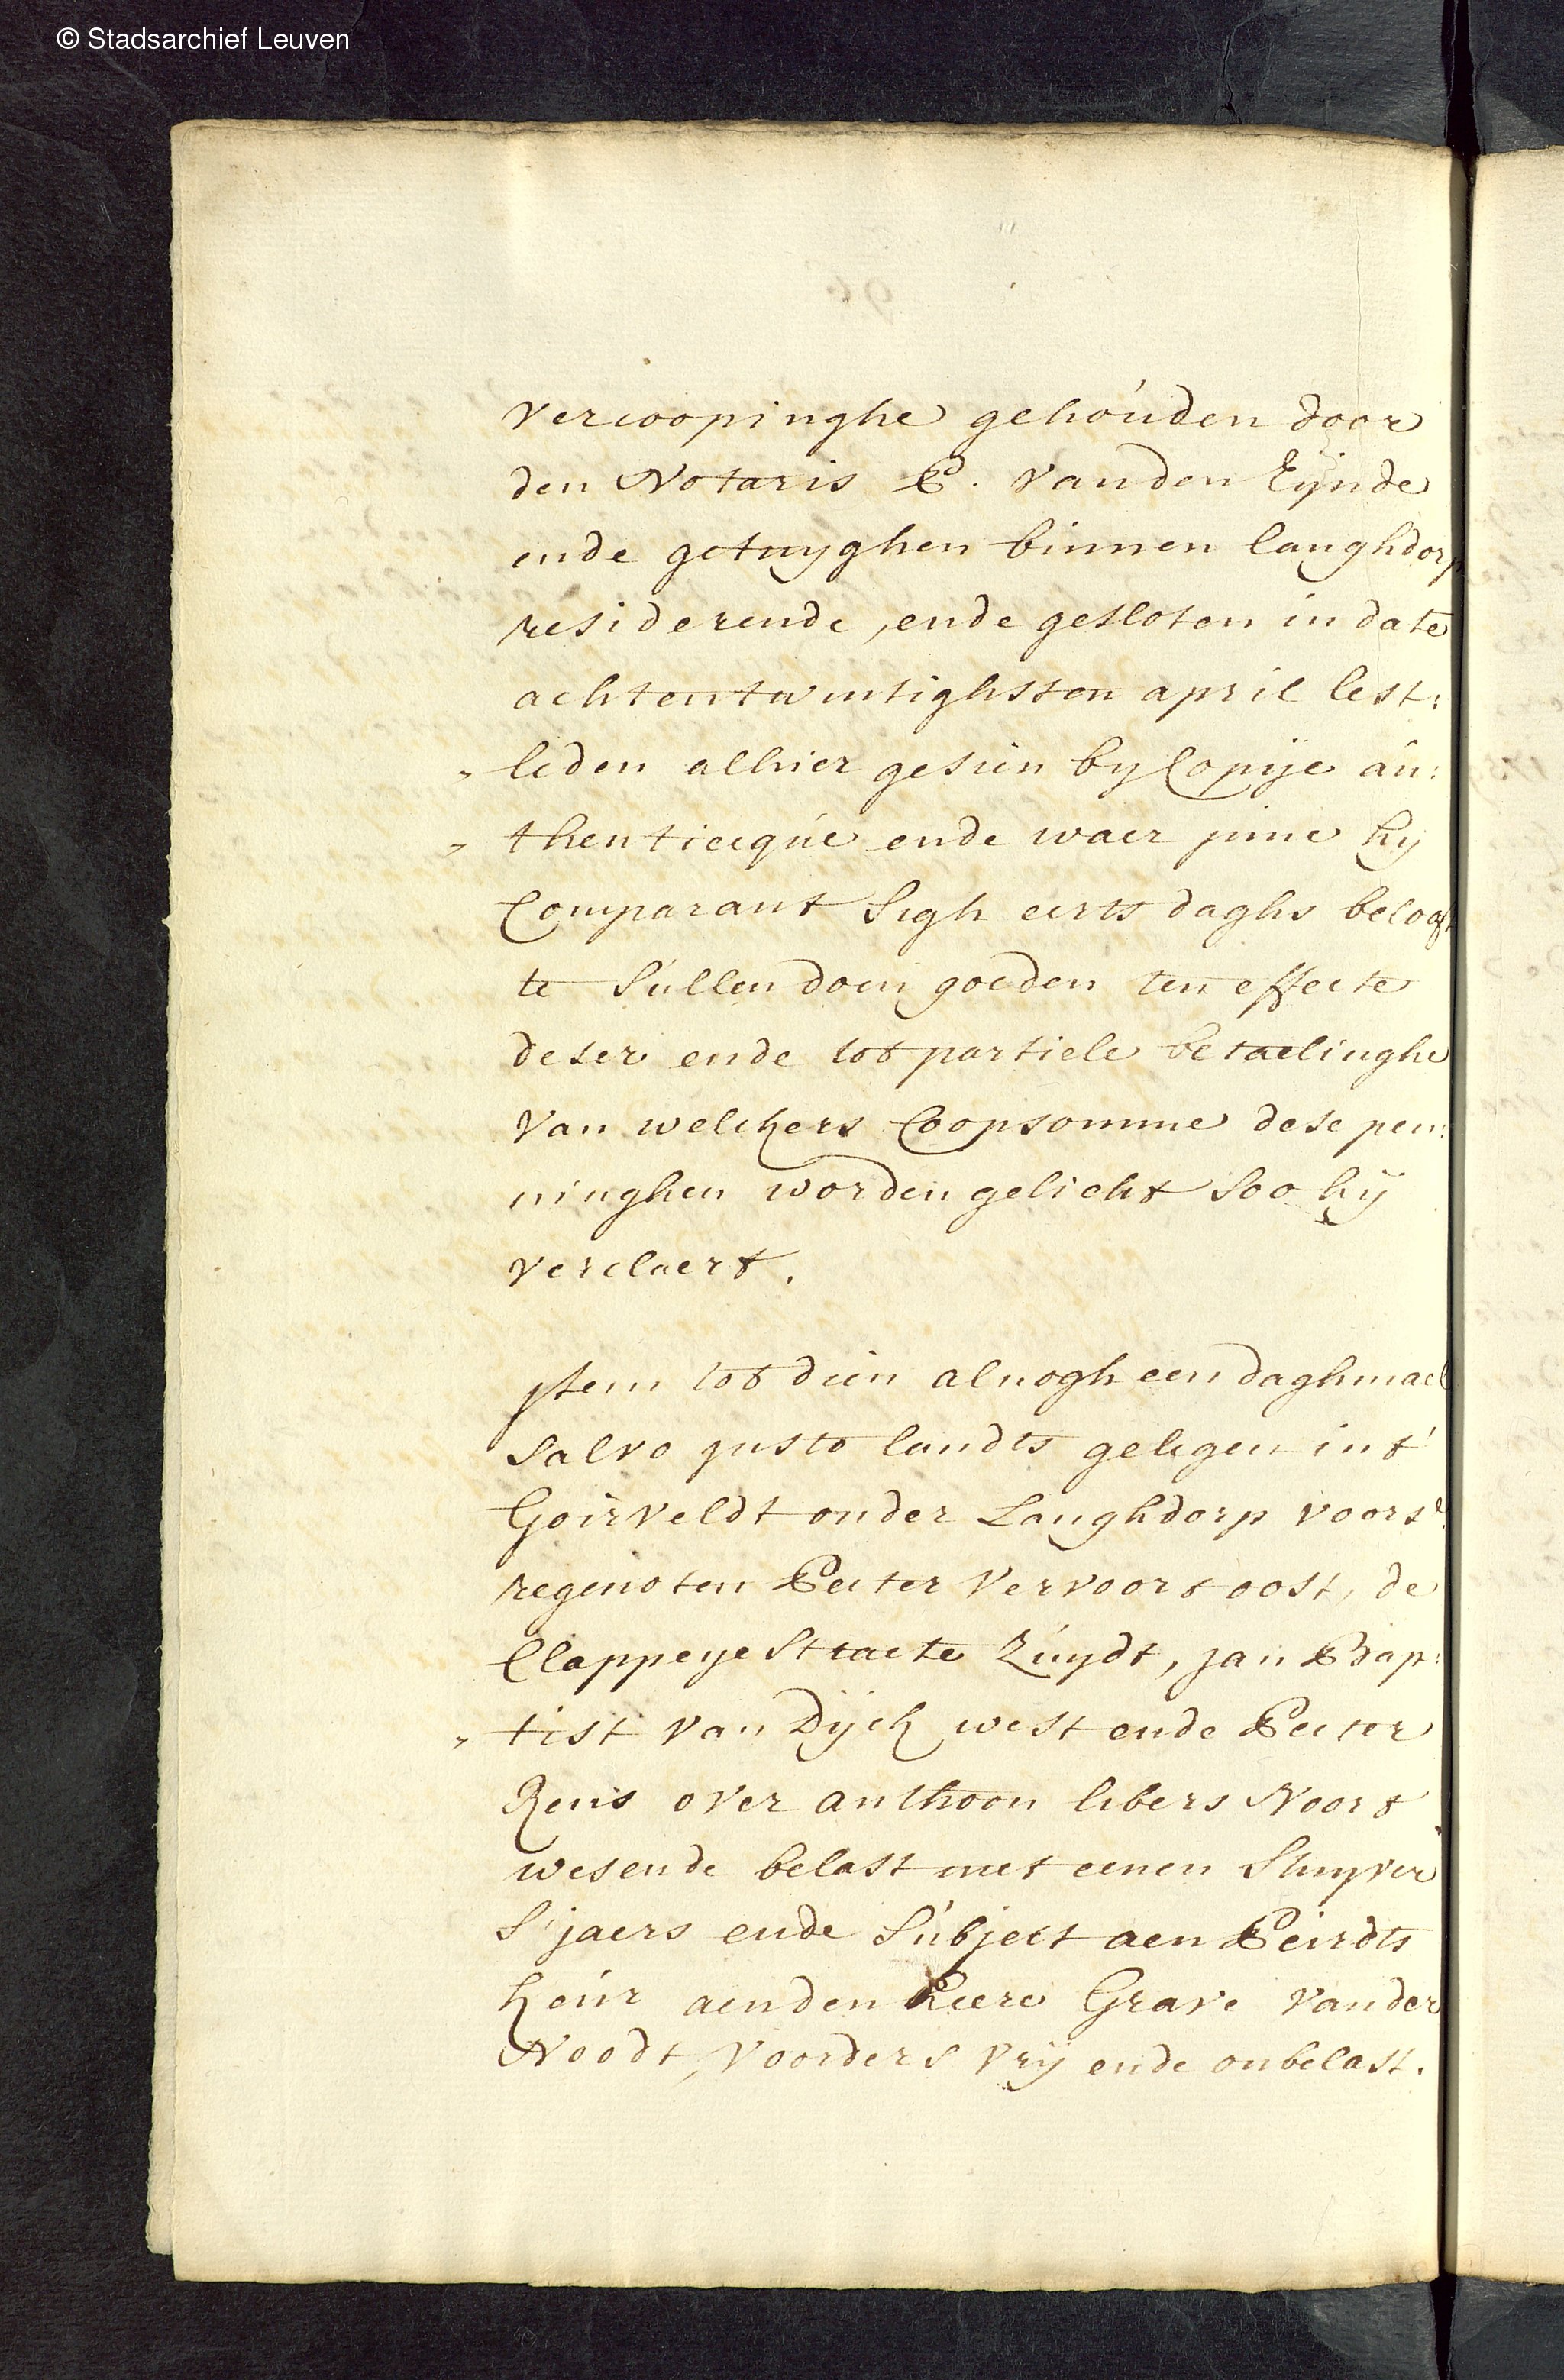 © Stadsarchief Leuven
vercoopinghe gehoúden door
den Notaris P. vanden Eÿnde
ende getuyghen binnen langhdorp
residerende, ende gesloten in date
achtentwintighsten april lest:
„ leden alhier gesien by Copije aú:
„ thenticqúe ende waer inne hy
Comparant Sigh eerts daghs belooft
te Súllen doen goeden ten effecte
deser ende tot partiele betaelinghe
van welckers Coopsomme dese pen:
ninghen worden gelicht Soo hÿ
verclaert.
Item tot dien alnogh een daghmael
Salvo justo landts gelegen int'
Goirveldt onder Langhdorp voors.
regenoten Peeter Vervoort oost, de
Clappeye Straete Zúydt, jan Bap:
„ tist van Dÿck west ende Peeter
Reijs over anthoon libers Noort
wesende belast met eenen Stuyver
S'jaers ende Súbject aen Peirdts
keúr aenden heere Grave vander
Noodt, Voorders vrÿ ende onbelast.